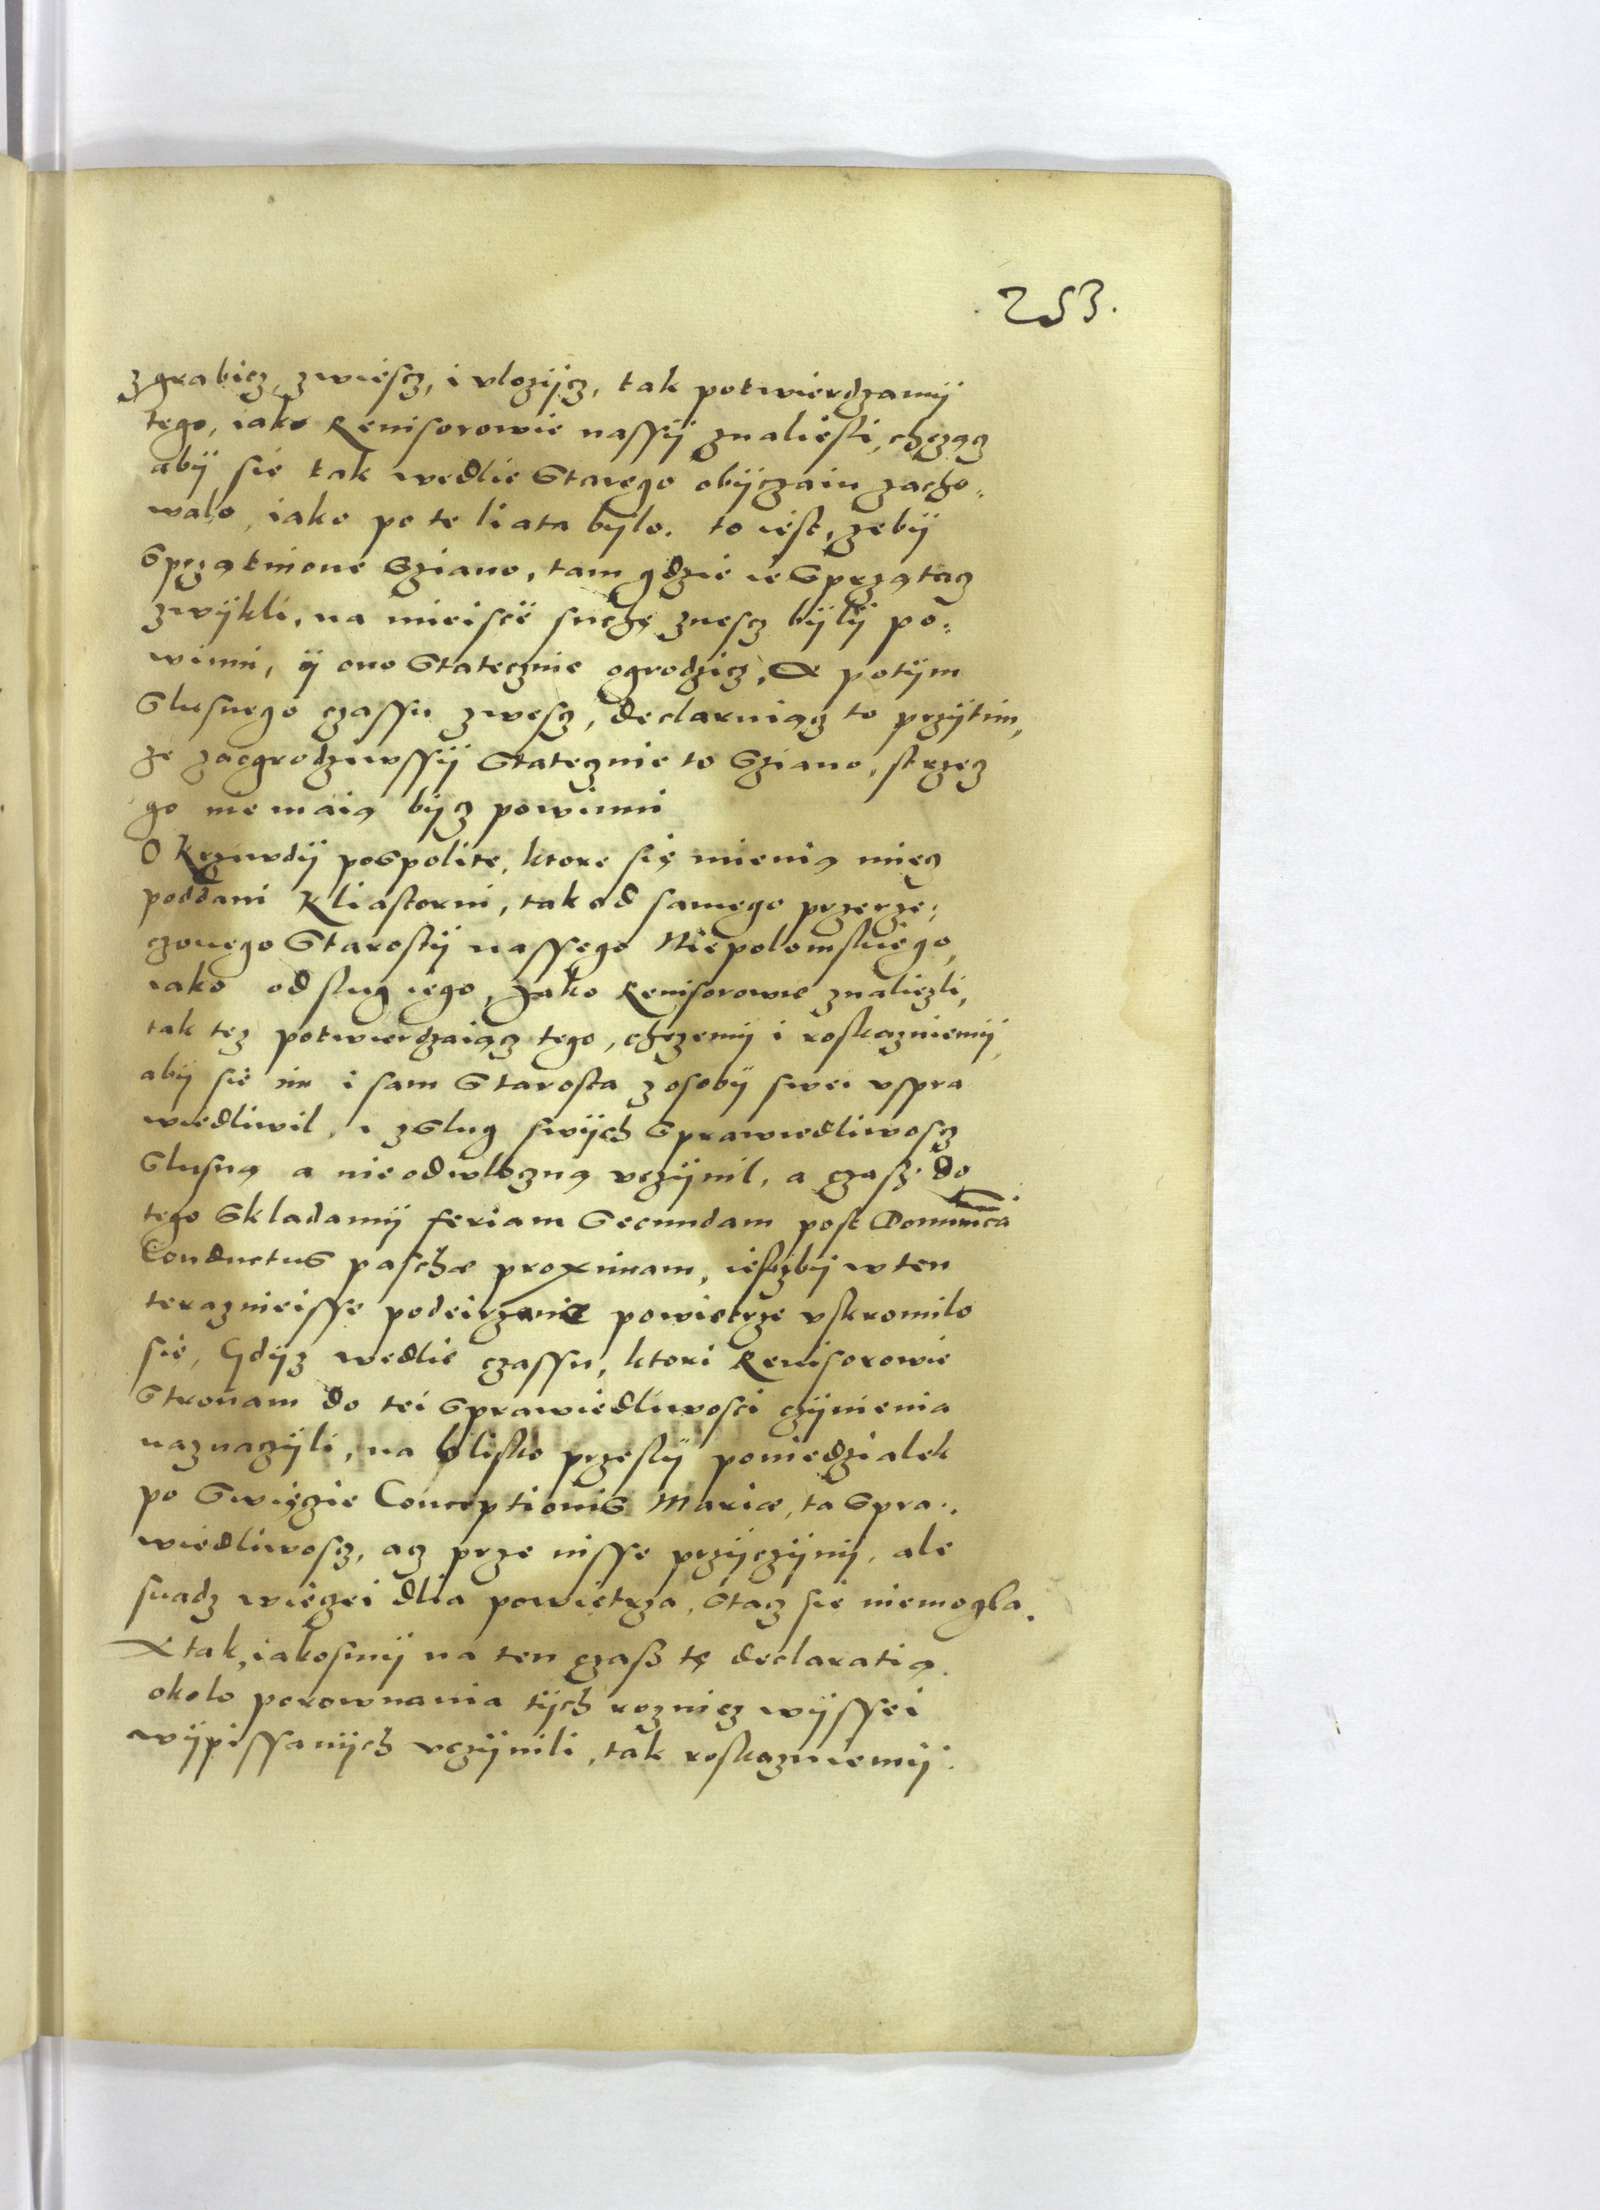 .253.
zgrabicz, zwiescz, i vlozÿcz, tak potwierdzamÿ
tego, iako Reuisorowie nassÿ znaliesli, chcząz
abÿ sie tak wedlie Starego obÿczaiu zacho„
walo, iako po te liata bÿlo. to iest, zebÿ
Sprzątnione Sziano, tam gdzie ie Sprzątacz
zwÿkli, na mieiscë suchę znescz bÿlÿ po„
winni, ÿ ono Statecznie ogrodzicz, A potÿm
Slusnego czassu zwescz, declaruiącz to przÿtim,
ze zaogrodziwssÿ Statecznie to Sziano, strzecz
go nie maią bÿcz powinni
O Krzywdÿ poSpolite, ktore się mienią miecz
poddani Kliastorni, tak od samego przerze„
czonego Starostÿ nassego Niepolomskiego,
iako od slug iego, Jako Reuisorowie znaliezli,
tak tez potwierdzaiącz tego, chczemÿ i roskazuiemÿ,
abÿ sie im i sam Starosta z osobÿ swei vspra
wiedliwil, i z Slug swÿch Sprawiedliwoscz
Slusną a nieodwloczną vczÿnil, a czasz do
tego Skladamÿ feriam Secundam post Dominicā
Conductus paschæ proximam, iesliżbÿ w ten
teraznieisse podeirzanie powietrze vskromilo
sie, Gdÿz wedlie czassu, ktori Reuisorowie
Stronam do tei Sprawiedliwosci czÿnienia
naznaczÿli, na blisko przeslÿ poniedzialek
po Swięcie Conceptionis Mariæ, ta Spra„
wiedliwoscz, acz prze nisse przÿczÿnÿ, ale
snadz więcei dlia powietrza, Stacz sie niemogla.
A tak, iakosmÿ na ten czasz tę declaratią
okolo porownania tÿch roznicz wÿssei
wÿpissanÿch vczÿnili, tak roskazuiemÿ.